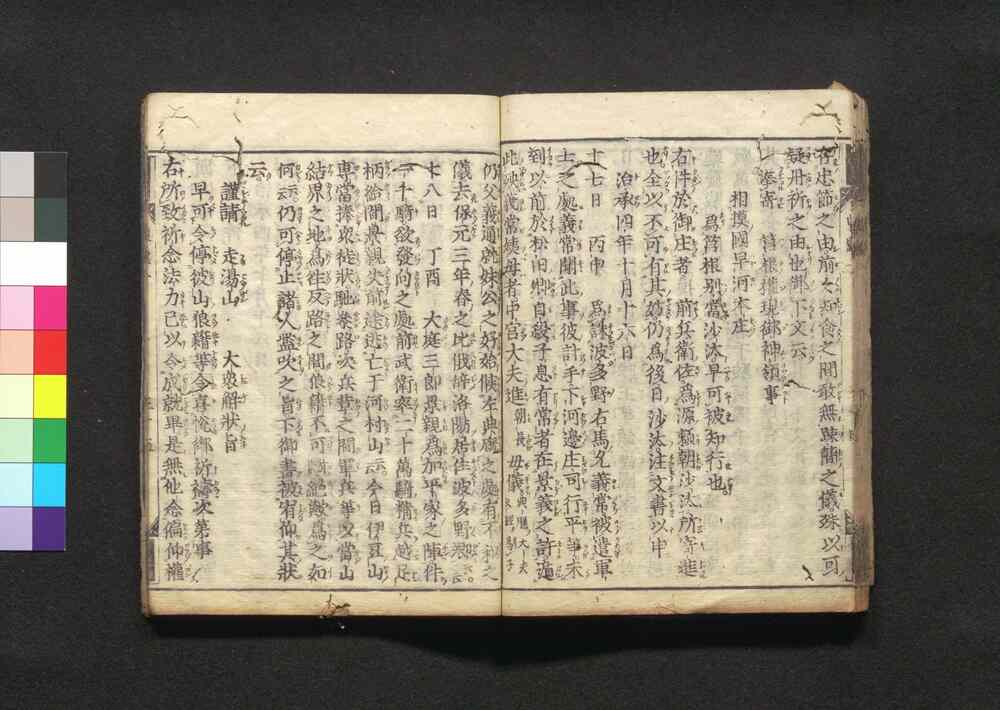 存忠節之由前々知食之間敢無疎簡之儀殊以可
疑用祈之由也御下文云
奉寄 筥根權現御神領事
相摸國早河本庄
爲筥根別當沙汰早可被知行也
右件於御庄者 前兵衛佐爲源頼朝沙汰所寄進
也全以不可有其妨仍爲後日沙汰注文書以申
治承四年十月十六日
十七日 丙申 爲誅波多野右馬允義常被遣軍
士之處義常聞此事彼討手下河邊庄司行平等未
到以前於松田郷自殺子息有常者在景義之許遁
此殃義常姨母者中宮大夫進朝長母儀典膳大夫
仍父義通就妹公之好始候左典廐之處有不和之
儀去保元三年春之比俄辭洛陽居住波多野
十八日 丁酉 大庭三郎景親爲加平家之陣伴
一千騎欲發向之處前武衛率二十萬騎精兵越足
柄給間景親失前途逃亡于河村山云今日伊豆山
專當捧衆徒狀馳參路次兵革之間軍兵等以當山
結界之地爲往反路之間狼藉不可斷絶歟爲之如
何云仍可停止諸人濫吹之旨下御書被宥仰其狀
云
謹請 走湯山 大衆解狀旨
早可令停彼山狼藉等令喜悅御祈禱次第事
右所致祈念法力已以令成就畢是無他念偏仰權